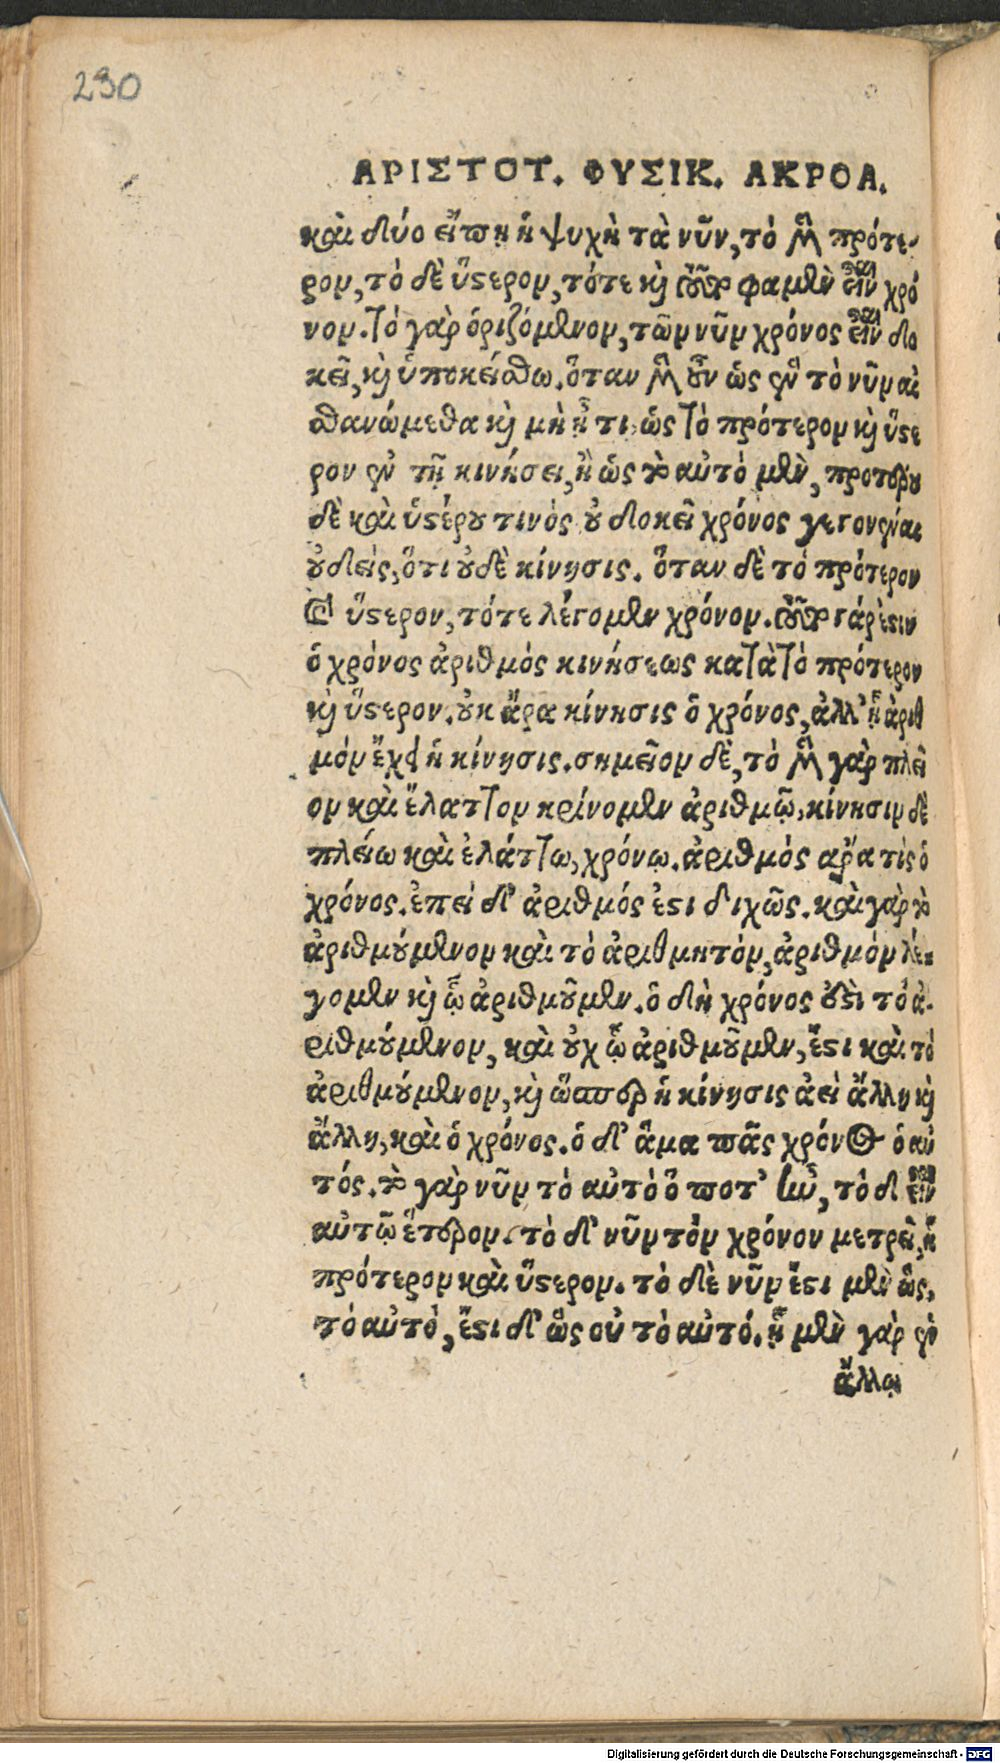 230
ΑΡΙΣΤΟΤ. ΦΥΣΙΚ. ΑΚΡΟΑ.
καὶ δύο εἴπῃ ἡ ψυχὴ τὰ νῦν, τὸ μὲν πρότε-
ρον, τὸ δὲ ὕστερον, τότε καὶ τοῦτο φαμὲν εἶναι χρό
νον. τὸ γὰρ ὁριζόμενον, τῷ νῦν χρόνος εἶναι δο
κεῖ, καὶ ὑποκείσθω. ὅταν μὲν οὖν ὡς ἓν τὸ νῦν αἰ
σθανώμεθα καὶ μὴ ἤτι ὡς τὸ πρότερον καὶ ὕστε
ρον ἐν τῇ κινήσει, ἢ ὡς τὸ αὐτὸ μὲν, προτέρου
δὲ καὶ ὑστέρου τινὸς οὐ δοκεῖ χρόνος γεγονέναι
οὐδεὶς, ὅτι οὐδὲ κίνησις. ὅταν δὲ τὸ πρότερον
καὶ ὕστερον, τότε λέγομεν χρόνον. τοῦτο γάρ ἐστιν
ὁ χρόνος ἀριθμός κινήσεως κατὰ τὸ πρότερον
καὶ ὕστερον. οὐκ ἄρα κίνησις ὁ χρόνος, ἀλλ' ᾗ ἀριθ
μὸν ἔχει ἡ κίνησις. σημεῖον δὲ, τὸ μὲν γὰρ πλεῖ
ον καὶ ἔλαττον κρίνομεν ἀριθμῷ, κίνησιν δὲ
πλείω καὶ ἐλάττω, χρόνῳ. ἀριθμὸς ἄρα τὶς ὁ
χρόνος. ἐπεὶ δ' ἀριθμός ἐστι διχῶς. καὶ γὰρ τὸ
ἀριθμούμενον καὶ τὸ ἀριθμητὸν, ἀριθμὸν λέ-
γομεν καὶ ᾧ ἀριθμοῦμεν. ὁ δὴ χρόνος ἐστὶ τὸ ἀ-
ριθμούμενον, καὶ οὐχ ᾧ ἀριθμοῦμεν, ἔστι καὶ τὸ
ἀριθμούμενον, καὶ ὥσπερ ἡ κίνησις ἀεὶ ἄλλη καὶ
ἄλλη, καὶ ὁ χρόνος. ὁ δ' ἅμα πᾶς χρόνος ὁ αὐ
τός. τὸ γὰρ νῦν τὸ αὐτὸ ὅ ποτ' ἦν, τὸ δ' εἶναι
αὐτῷ ἕτερον. τὸ δ' νῦν τὸν χρόνον μετρεῖ, ᾗ
πρότερον καὶ ὕστερον. τὸ δὲ νῦν ἔστι μὲν ὡς,
τὸ αὐτὸ, ἔστι δ' ὡς οὐ τὸ αὐτό. ᾗ μὲν γὰρ ἐν
ἄλλῳ
Digitalisierung gefördert durch die Deutsche Forschungsgemeinschaft - DFG